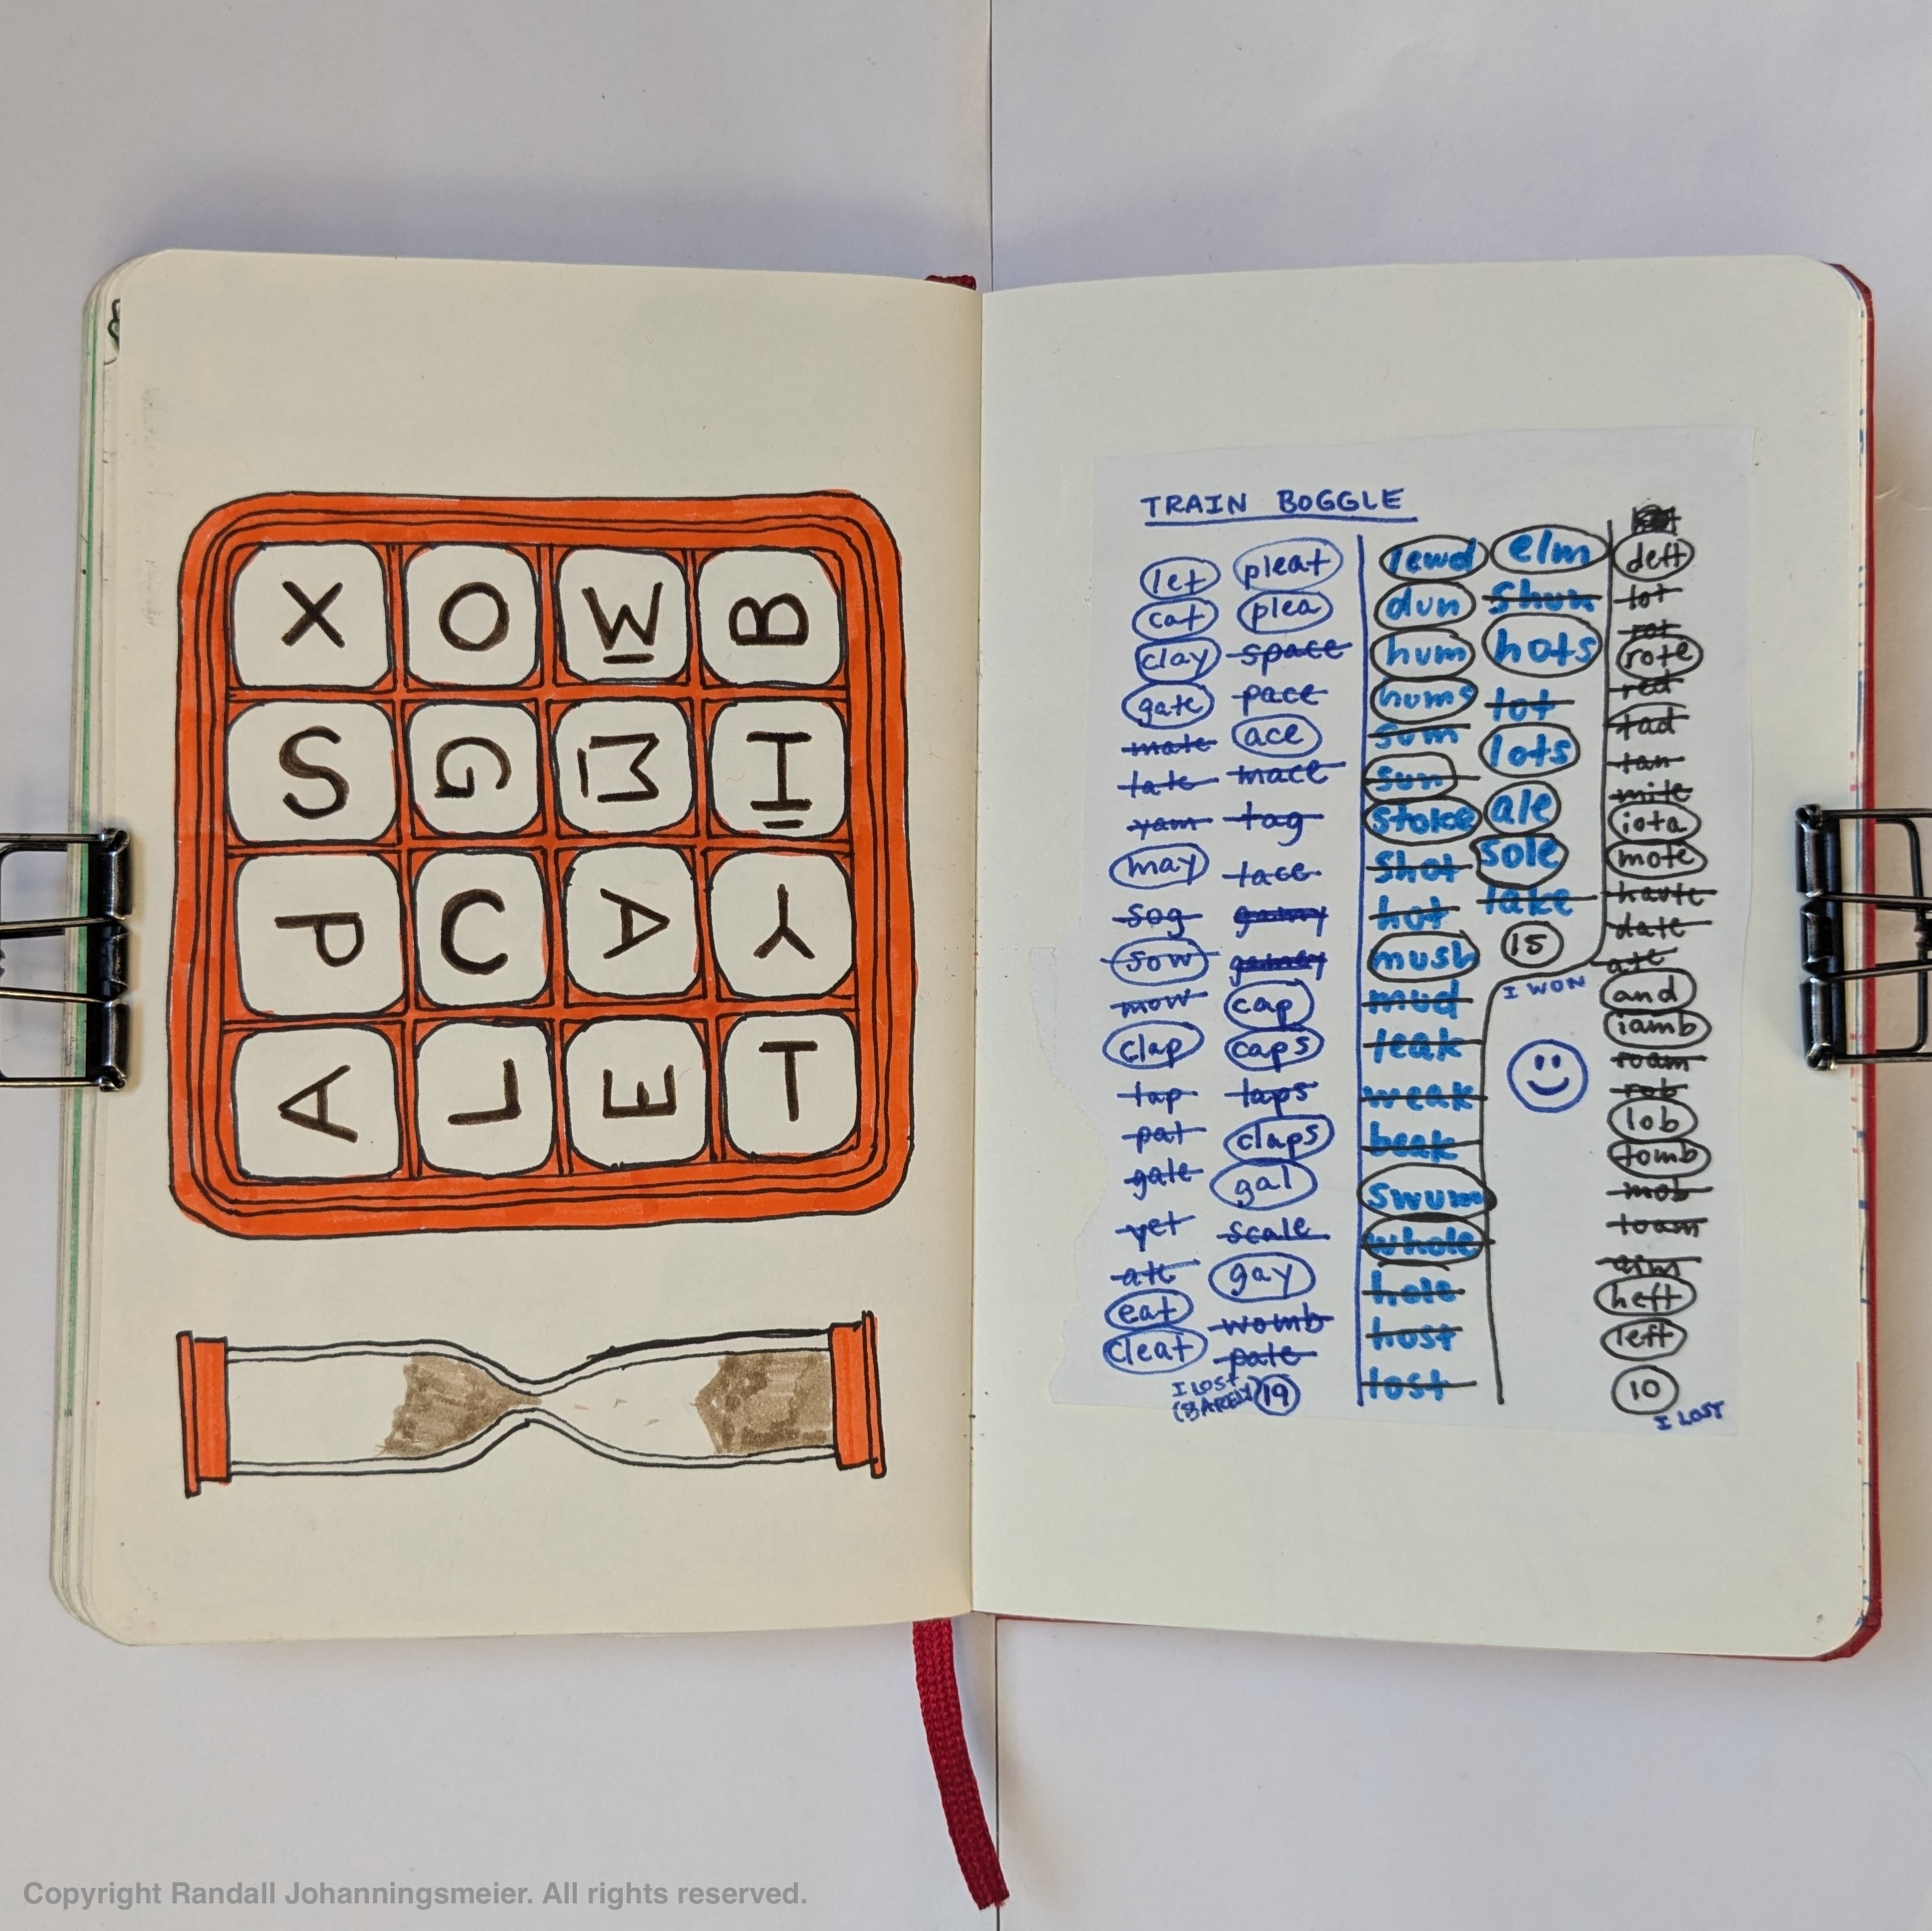 X O W B
S G M H
P C A Y
A L E T
TRAIN BOGGLE
let
cat
clay
gate
mate
tate
yam
may
sog
sow
mow
clap
tap
pat
gale
yet
ate
eat
cleat
pleat
plea
space
pace
ace
mace
tag
tace
gamey
cap
caps
taps
claps
gal
scale
gay
womb
pale
I LOST
(BARELY) 19
lewd
dun
hum
hums
sum
sun
stoke
shot
hot
mush
mud
leak
weak
beak
swum
whole
hole
host
lost
elm
shun
hots
lot
lots
ale
sole
lake
15
I WON
deft
lot
rot
rote
red
tad
tan
mite
iota
mote
haute
date
ate
and
iamb
roam
rob
lob
tomb
mob
loam
aim
heft
left
10
I LOST
Copyright Randall Johanningsmeier. All rights reserved.